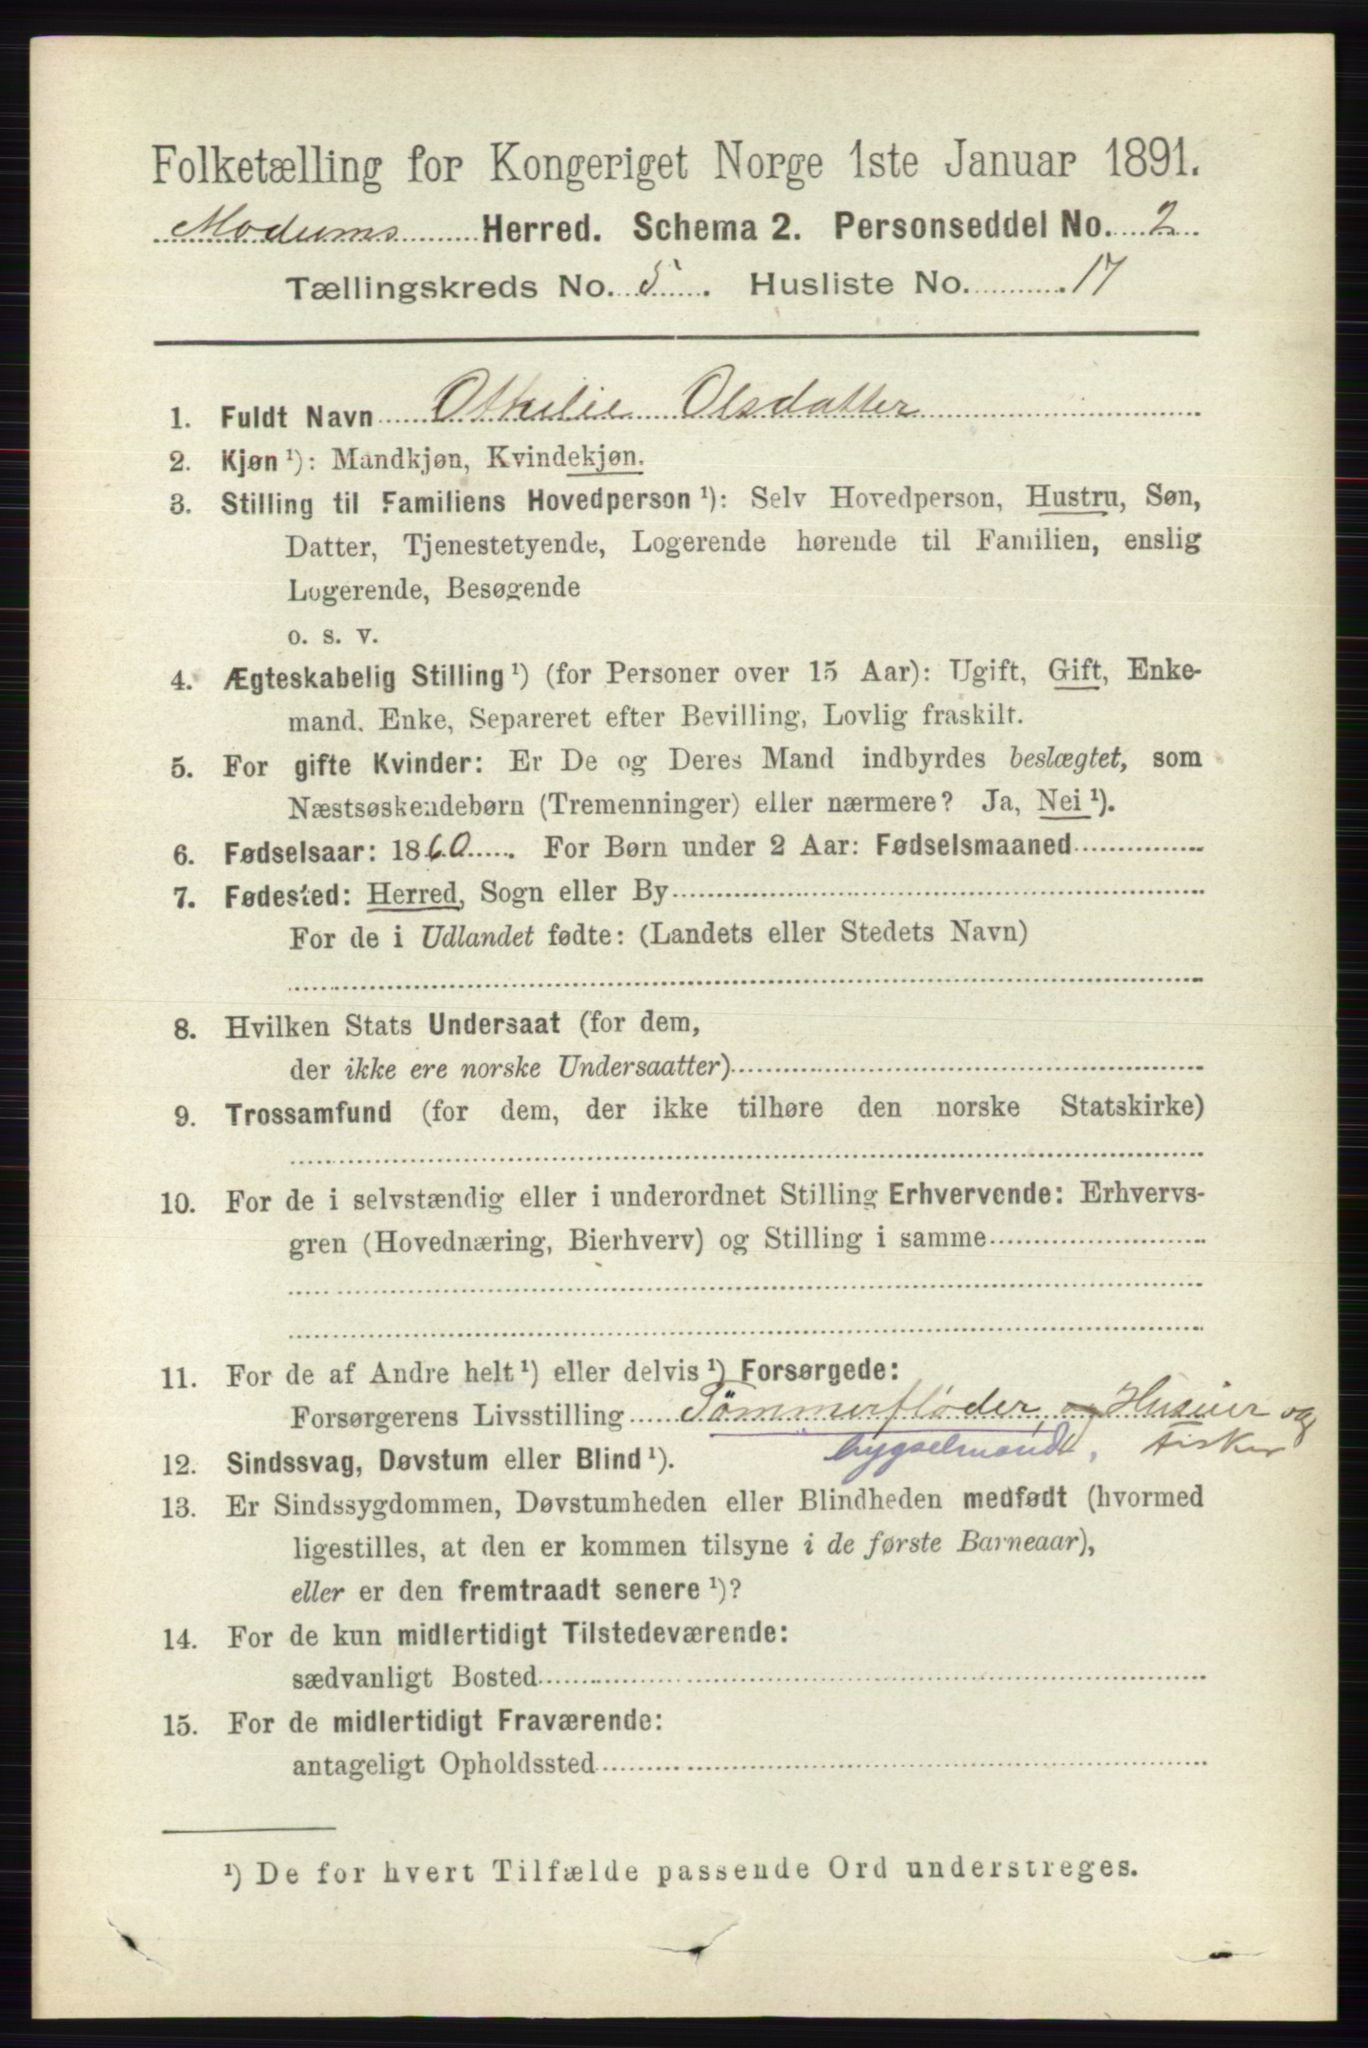 Folketælling for Kongeriget Norge 1ste Januar 1891.
Modums Herred. Schema 2. Personseddel No. 2
Tællingskreds No. 5. Husliste No. 17
1. Fuldt Navn Othilie Olsdatter
2. Kjøn ¹): Mandkjøn, Kvindekjøn.
3. Stilling til Familiens Hovedperson ¹): Selv Hovedperson, Hustru, Søn,
Datter, Tjenestetyende, Logerende hørende til Familien, enslig
Logerende, Besøgende
o. s. v.
4. Ægteskabelig Stilling ¹) (for Personer over 15 Aar): Ugift, Gift, Enke-
mand. Enke, Separeret efter Bevilling, Lovlig fraskilt.
5. For gifte Kvinder: Er De og Deres Mand indbyrdes beslægtet, som
Næstsøskendebørn (Tremenninger) eller nærmere? Ja, Nei ¹).
6. Fødselsaar: 1860. For Børn under 2 Aar: Fødselsmaaned
7. Fødested: Herred, Sogn eller By
For de i Udlandet fødte: (Landets eller Stedets Navn)
8. Hvilken Stats Undersaat (for dem,
der ikke ere norske Undersaatter)
9. Trossamfund (for dem, der ikke tilhøre den norske Statskirke)
10. For de i selvstændig eller i underordnet Stilling Erhvervende: Erhvervs-
gren (Hovednæring, Bierhverv) og Stilling i samme
11. For de af Andre helt ¹) eller delvis ¹) Forsørgede:
Forsørgerens Livsstilling Tömmerfløder, og Husier og
bygselmand, Fisker
12. Sindssvag, Døvstum eller Blind ¹).
13. Er Sindssygdommen, Døvstumheden eller Blindheden medfødt (hvormed
ligestilles, at den er kommen tilsyne i de første Barneaar),
eller er den fremtraadt senere ¹)?
14. For de kun midlertidigt Tilstedeværende:
sædvanligt Bosted
15. For de midlertidigt Fraværende:
antageligt Opholdssted
¹) De for hvert Tilfælde passende Ord understreges.